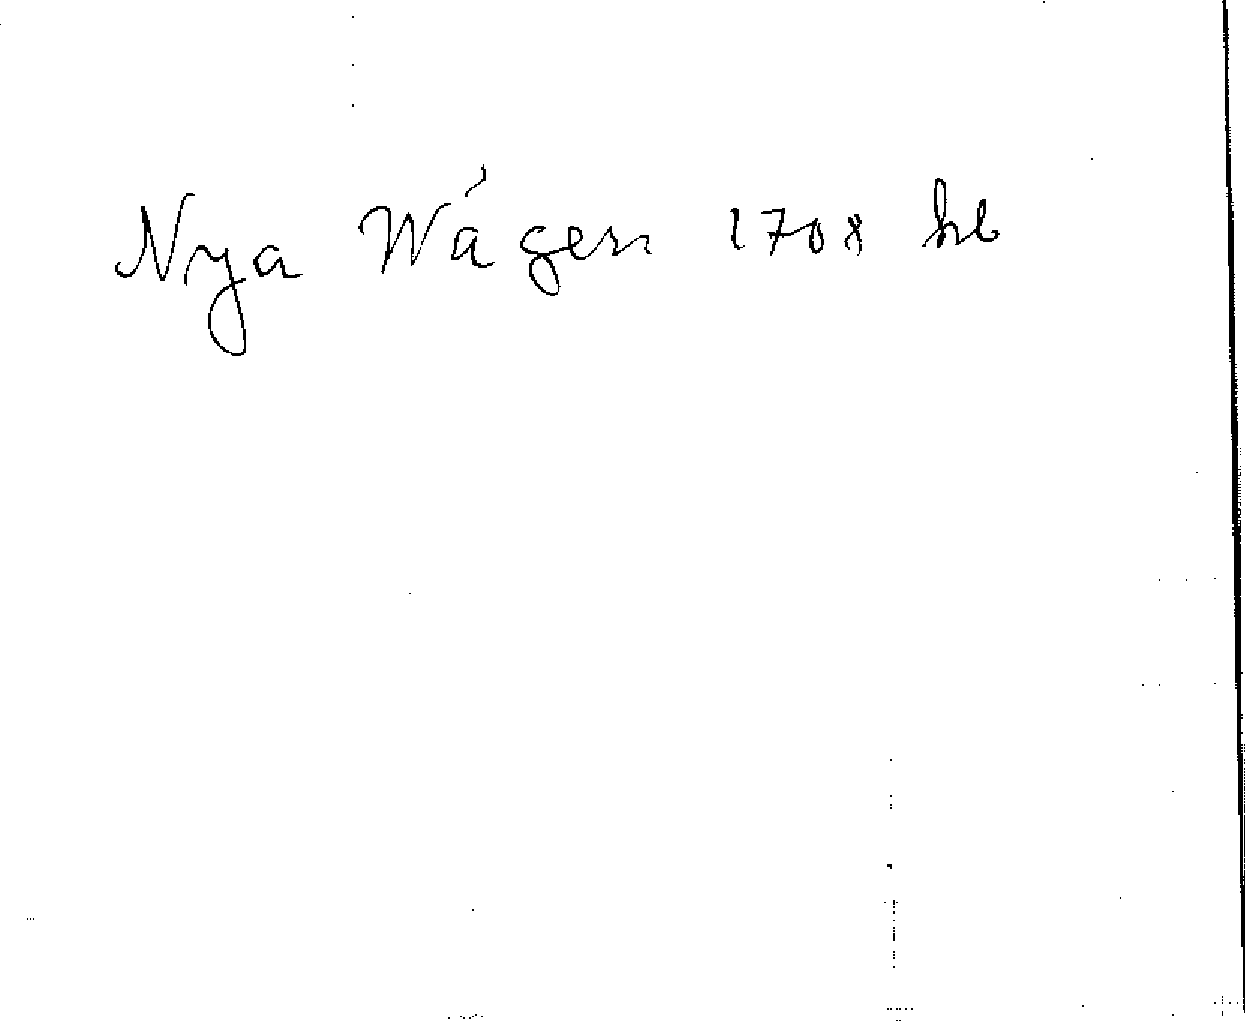 Nya Wágen 1708 hb